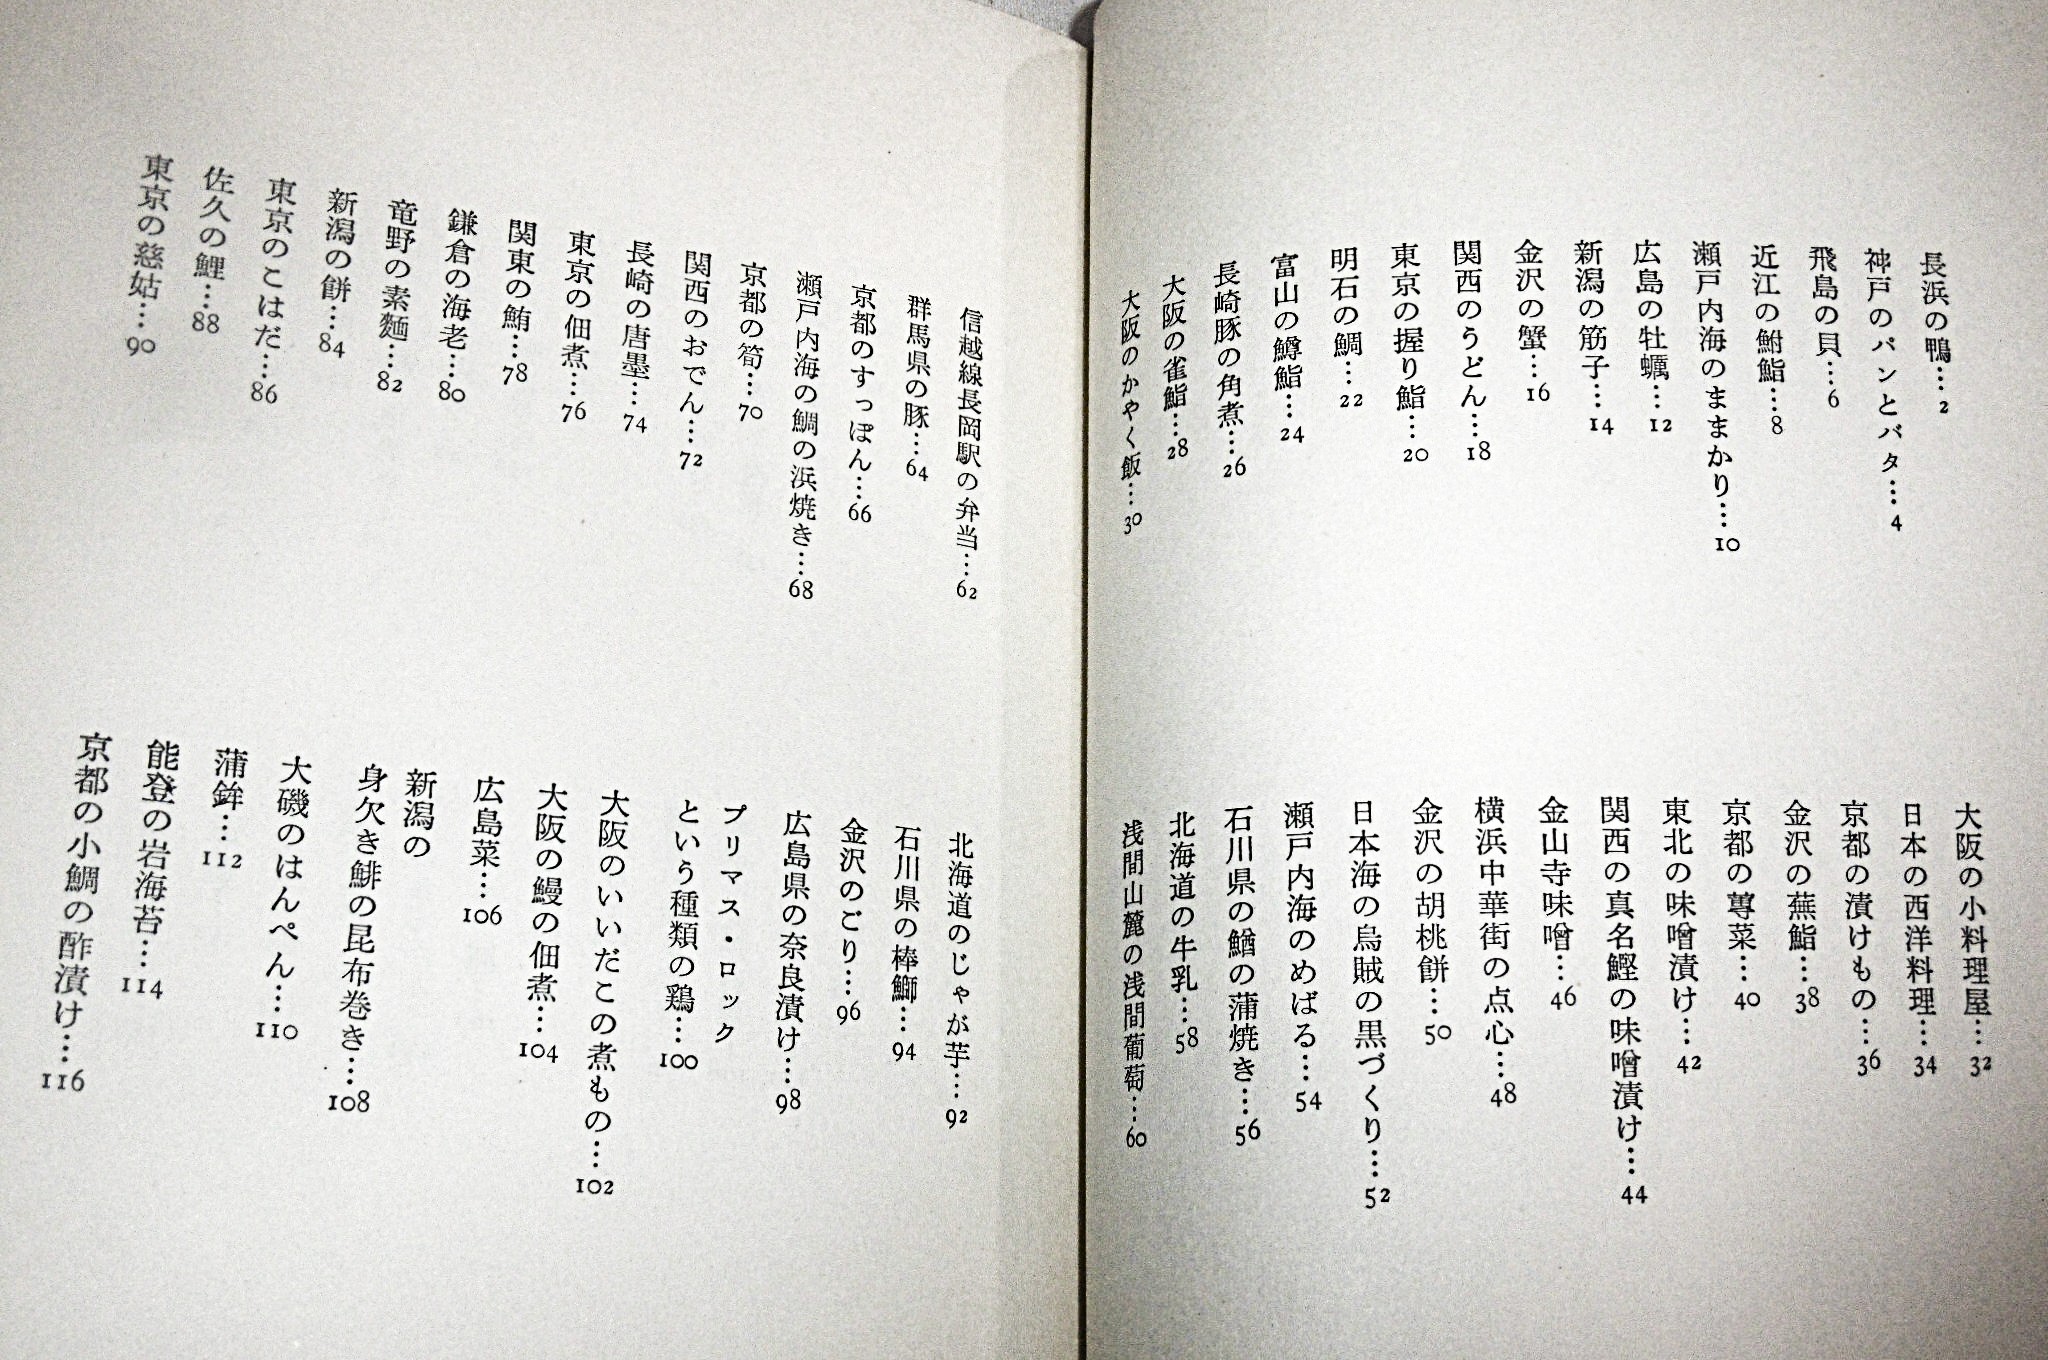 長浜の鴨…2
神戸のパンとバタ…4
飛島の貝…6
近江の鮒鮨…8
瀬戸内海のままかり…10
広島の牡蠣…12
新潟の筋子…14
金沢の蟹…16
関西のうどん…18
東京の握り鮨…20
明石の鯛…22
富山の鱒鮨…24
長崎豚の角煮…26
大阪の雀鮨…28
大阪のかやく飯…30
大阪の小料理屋…32
日本の西洋料理…34
京都の漬けもの…36
金沢の蕪鮨…38
京都の蓴菜…40
東北の味噌漬け…42
関西の真名鰹の味噌漬け…44
金山寺味噌…46
横浜中華街の点心…48
金沢の胡桃餅…50
日本海の烏賊の黒づくり…52
瀬戸内海のめばる…54
石川県の鰌の蒲焼き…56
北海道の牛乳…58
浅間山麓の浅間葡萄…60
信越線長岡駅の弁当…62
群馬県の豚…64
京都のすっぽん…66
瀬戸内海の鯛の浜焼き…68
京都の筍…70
関西のおでん…72
長崎の唐墨…74
東京の佃煮…76
関東の鮪…78
鎌倉の海老…80
竜野の素麺…82
新潟の餅…84
東京のこはだ…86
佐久の鯉…88
東京の慈姑…90
北海道のじゃが芋…92
石川県の棒鰤…94
金沢のごり…96
広島県の奈良漬け…98
プリマス・ロック
という種類の鶏…100
大阪のいいだこの煮もの…102
大阪の鰻の佃煮…104
広島菜…106
新潟の
身欠き鯡の昆布巻き…108
大磯のはんぺん…110
蒲鉾…112
能登の岩海苔…114
京都の小鯛の酢漬け…116